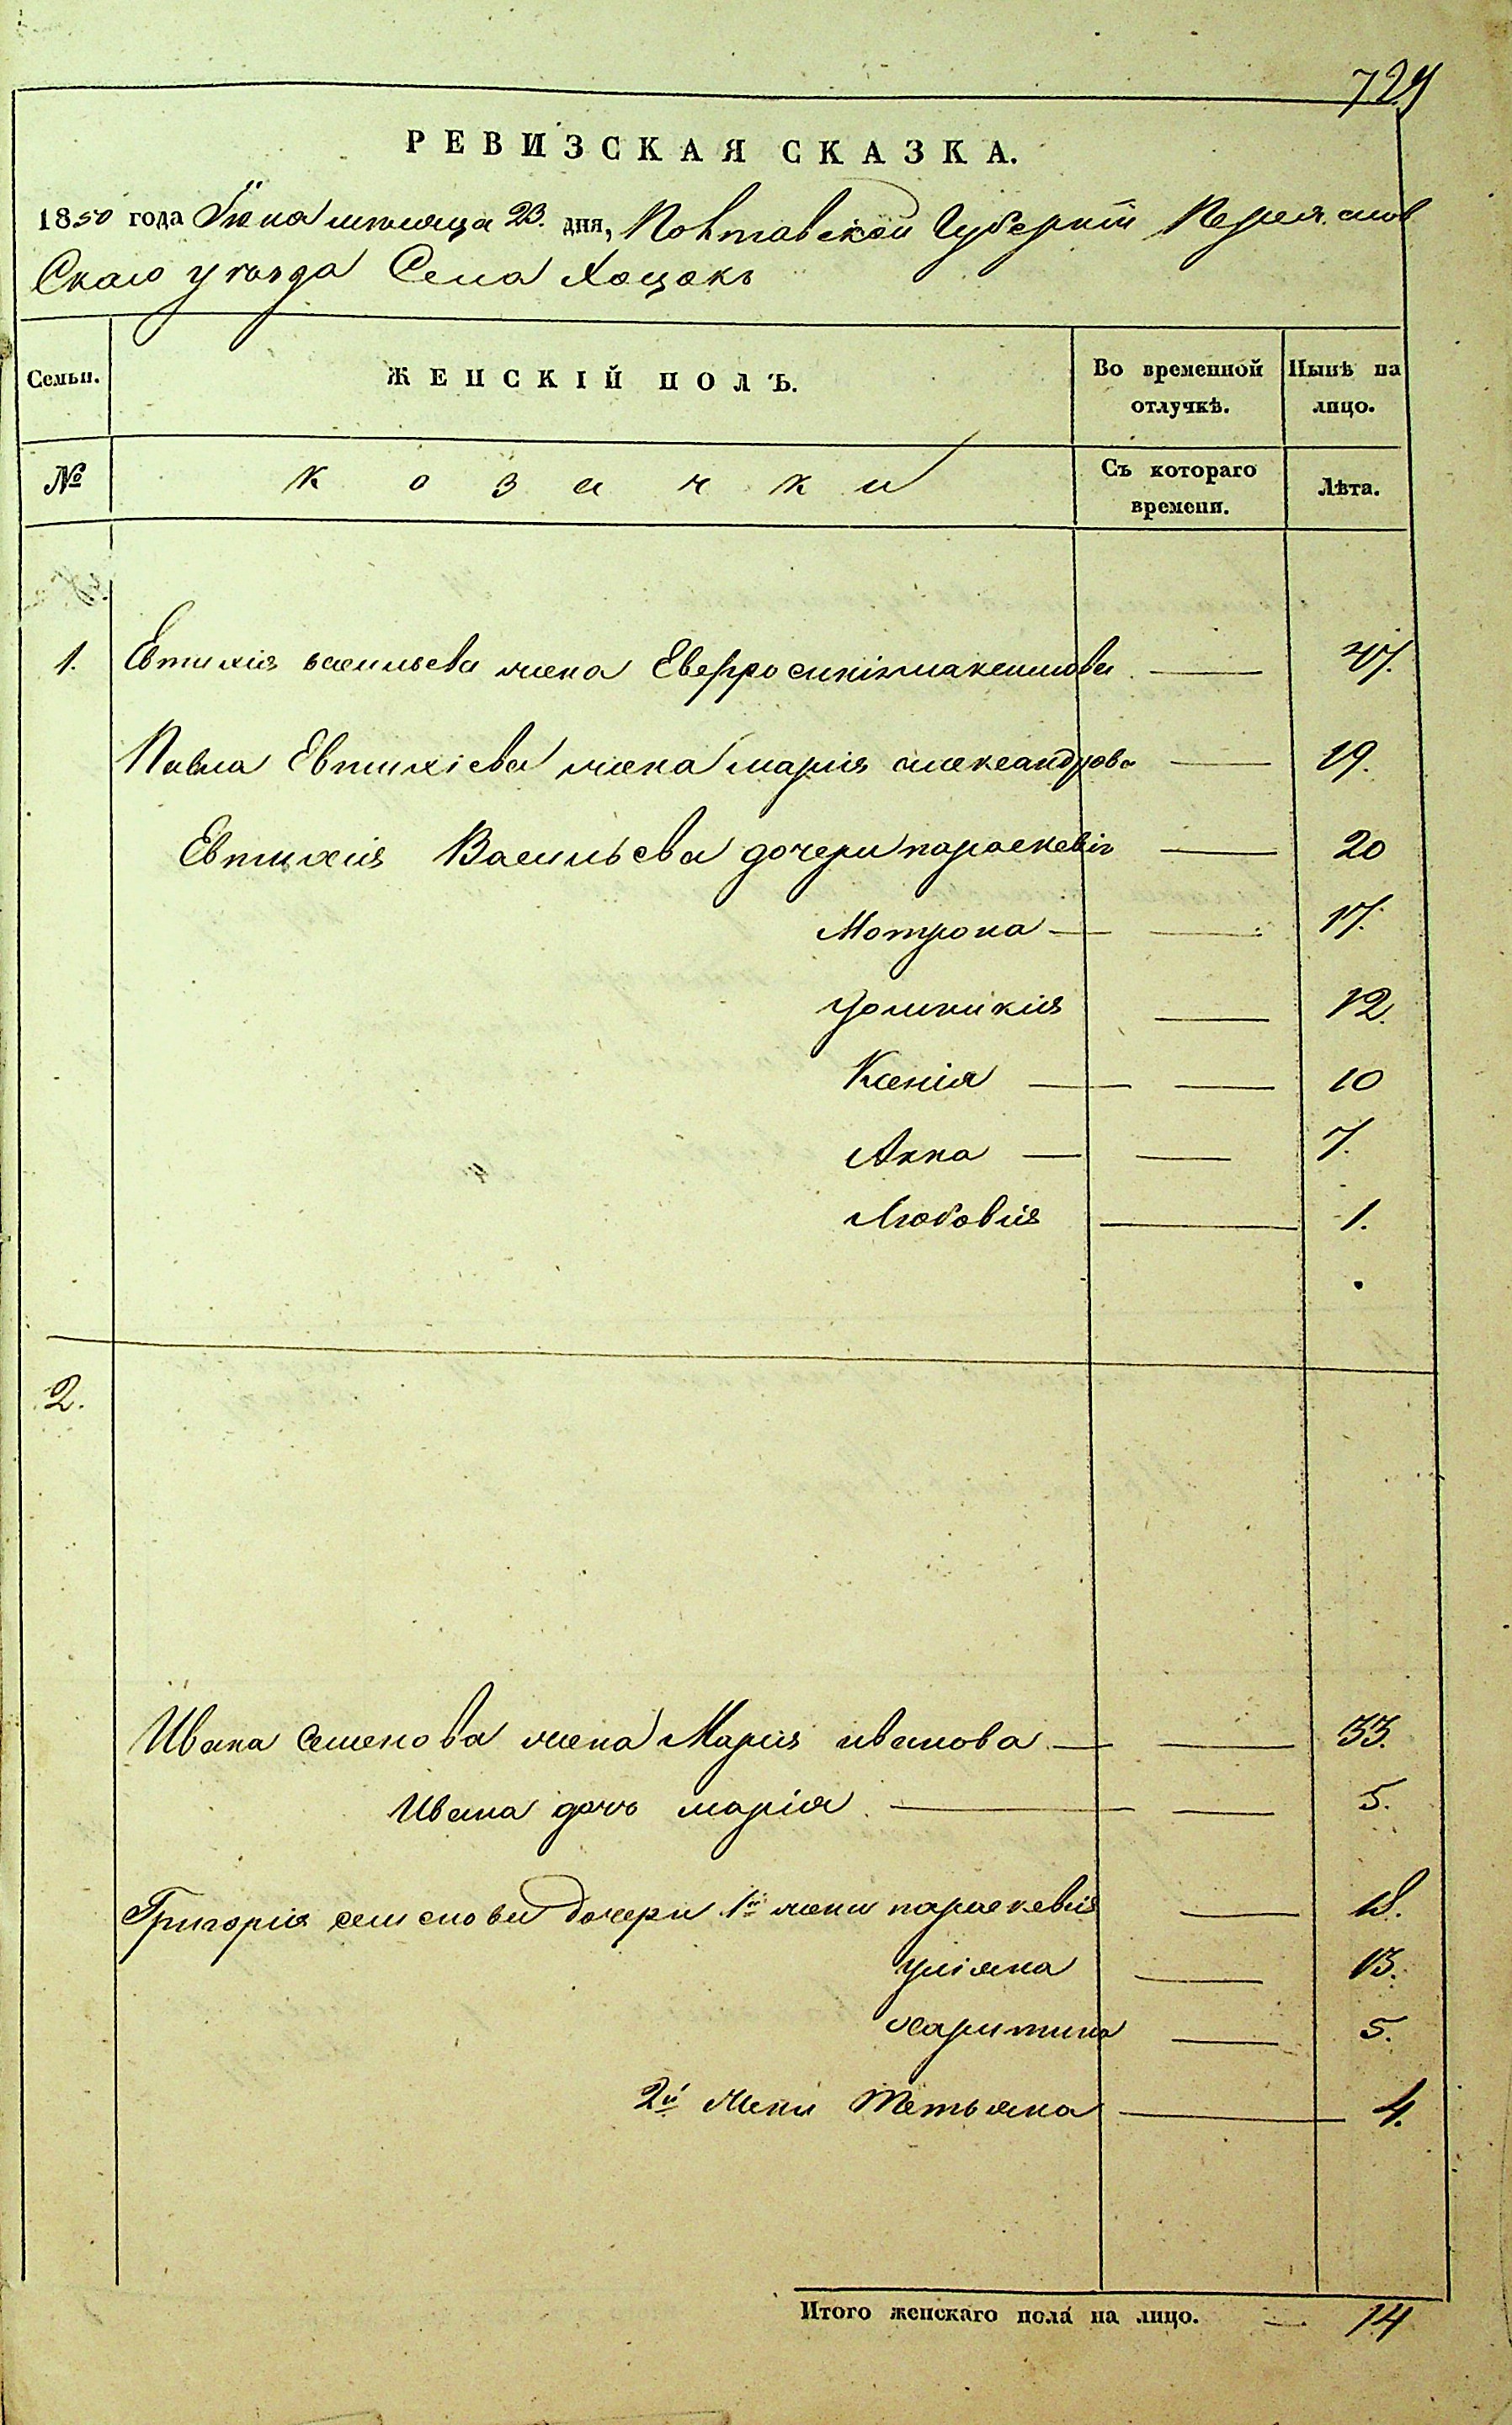 729
РЕВИЗСКАЯ СКАЗКА.
1850 года Іюна мѣсяца 23. дня, Полтавской Губерніи Переяслов
Скаго уѣзда Села Хоцокъ
Семьи. ЖЕНСКІЙ ПОЛЪ. Во временной отлучкѣ. Нынѣ на лицо.
№ козачки Съ котораго времени. Лѣта.
1. Евтихія васильева жена Евфросинія максимова — 47.
Павла Евтихіева жена марія александрова — 19.
Евтихія Васильева дочери параскевія — 20
Мотрона — — 17.
Домникія — 12.
Ксенія — — 10
Анна — — 7.
Любовія — 1.
2.
Ивана Семенова жена Марія иванова — — 33.
Ивана дочь марія — — 5.
Григорія семенова дочери 1й жени параскевія — 18.
уліяна — 13.
харитина — 5.
2й Жени Тетьяна — 4.
Итого женскаго пола на лицо. — 14